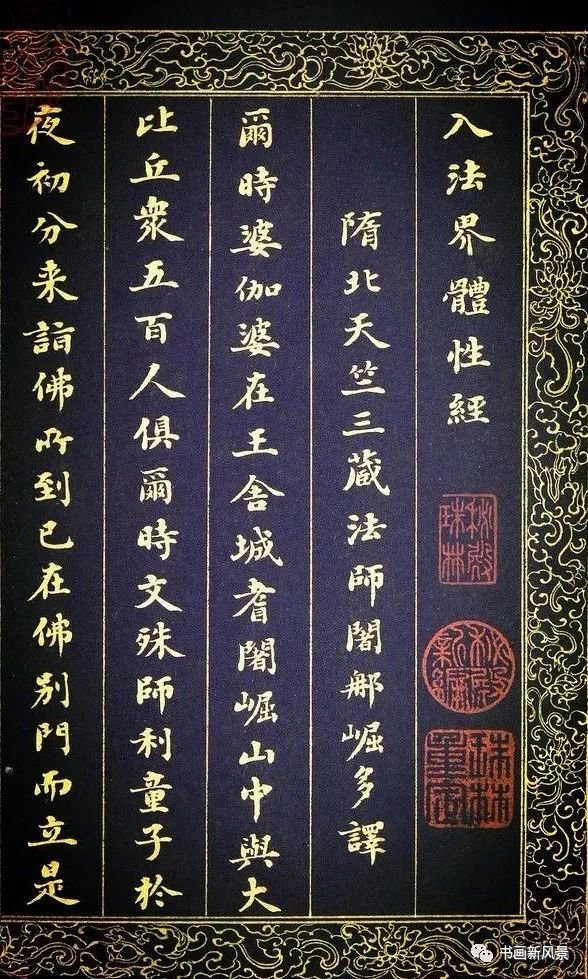 入法界體性經
隋北天竺三藏法師闍那崛多譯
爾時婆伽婆在王舍城耆闍崛山中與大
比丘衆五百人俱爾時文殊師利童子於
夜初分来詣佛所到已在佛別門而立是
秘殿珠林
秘殿新編
珠林重定
书画新风景